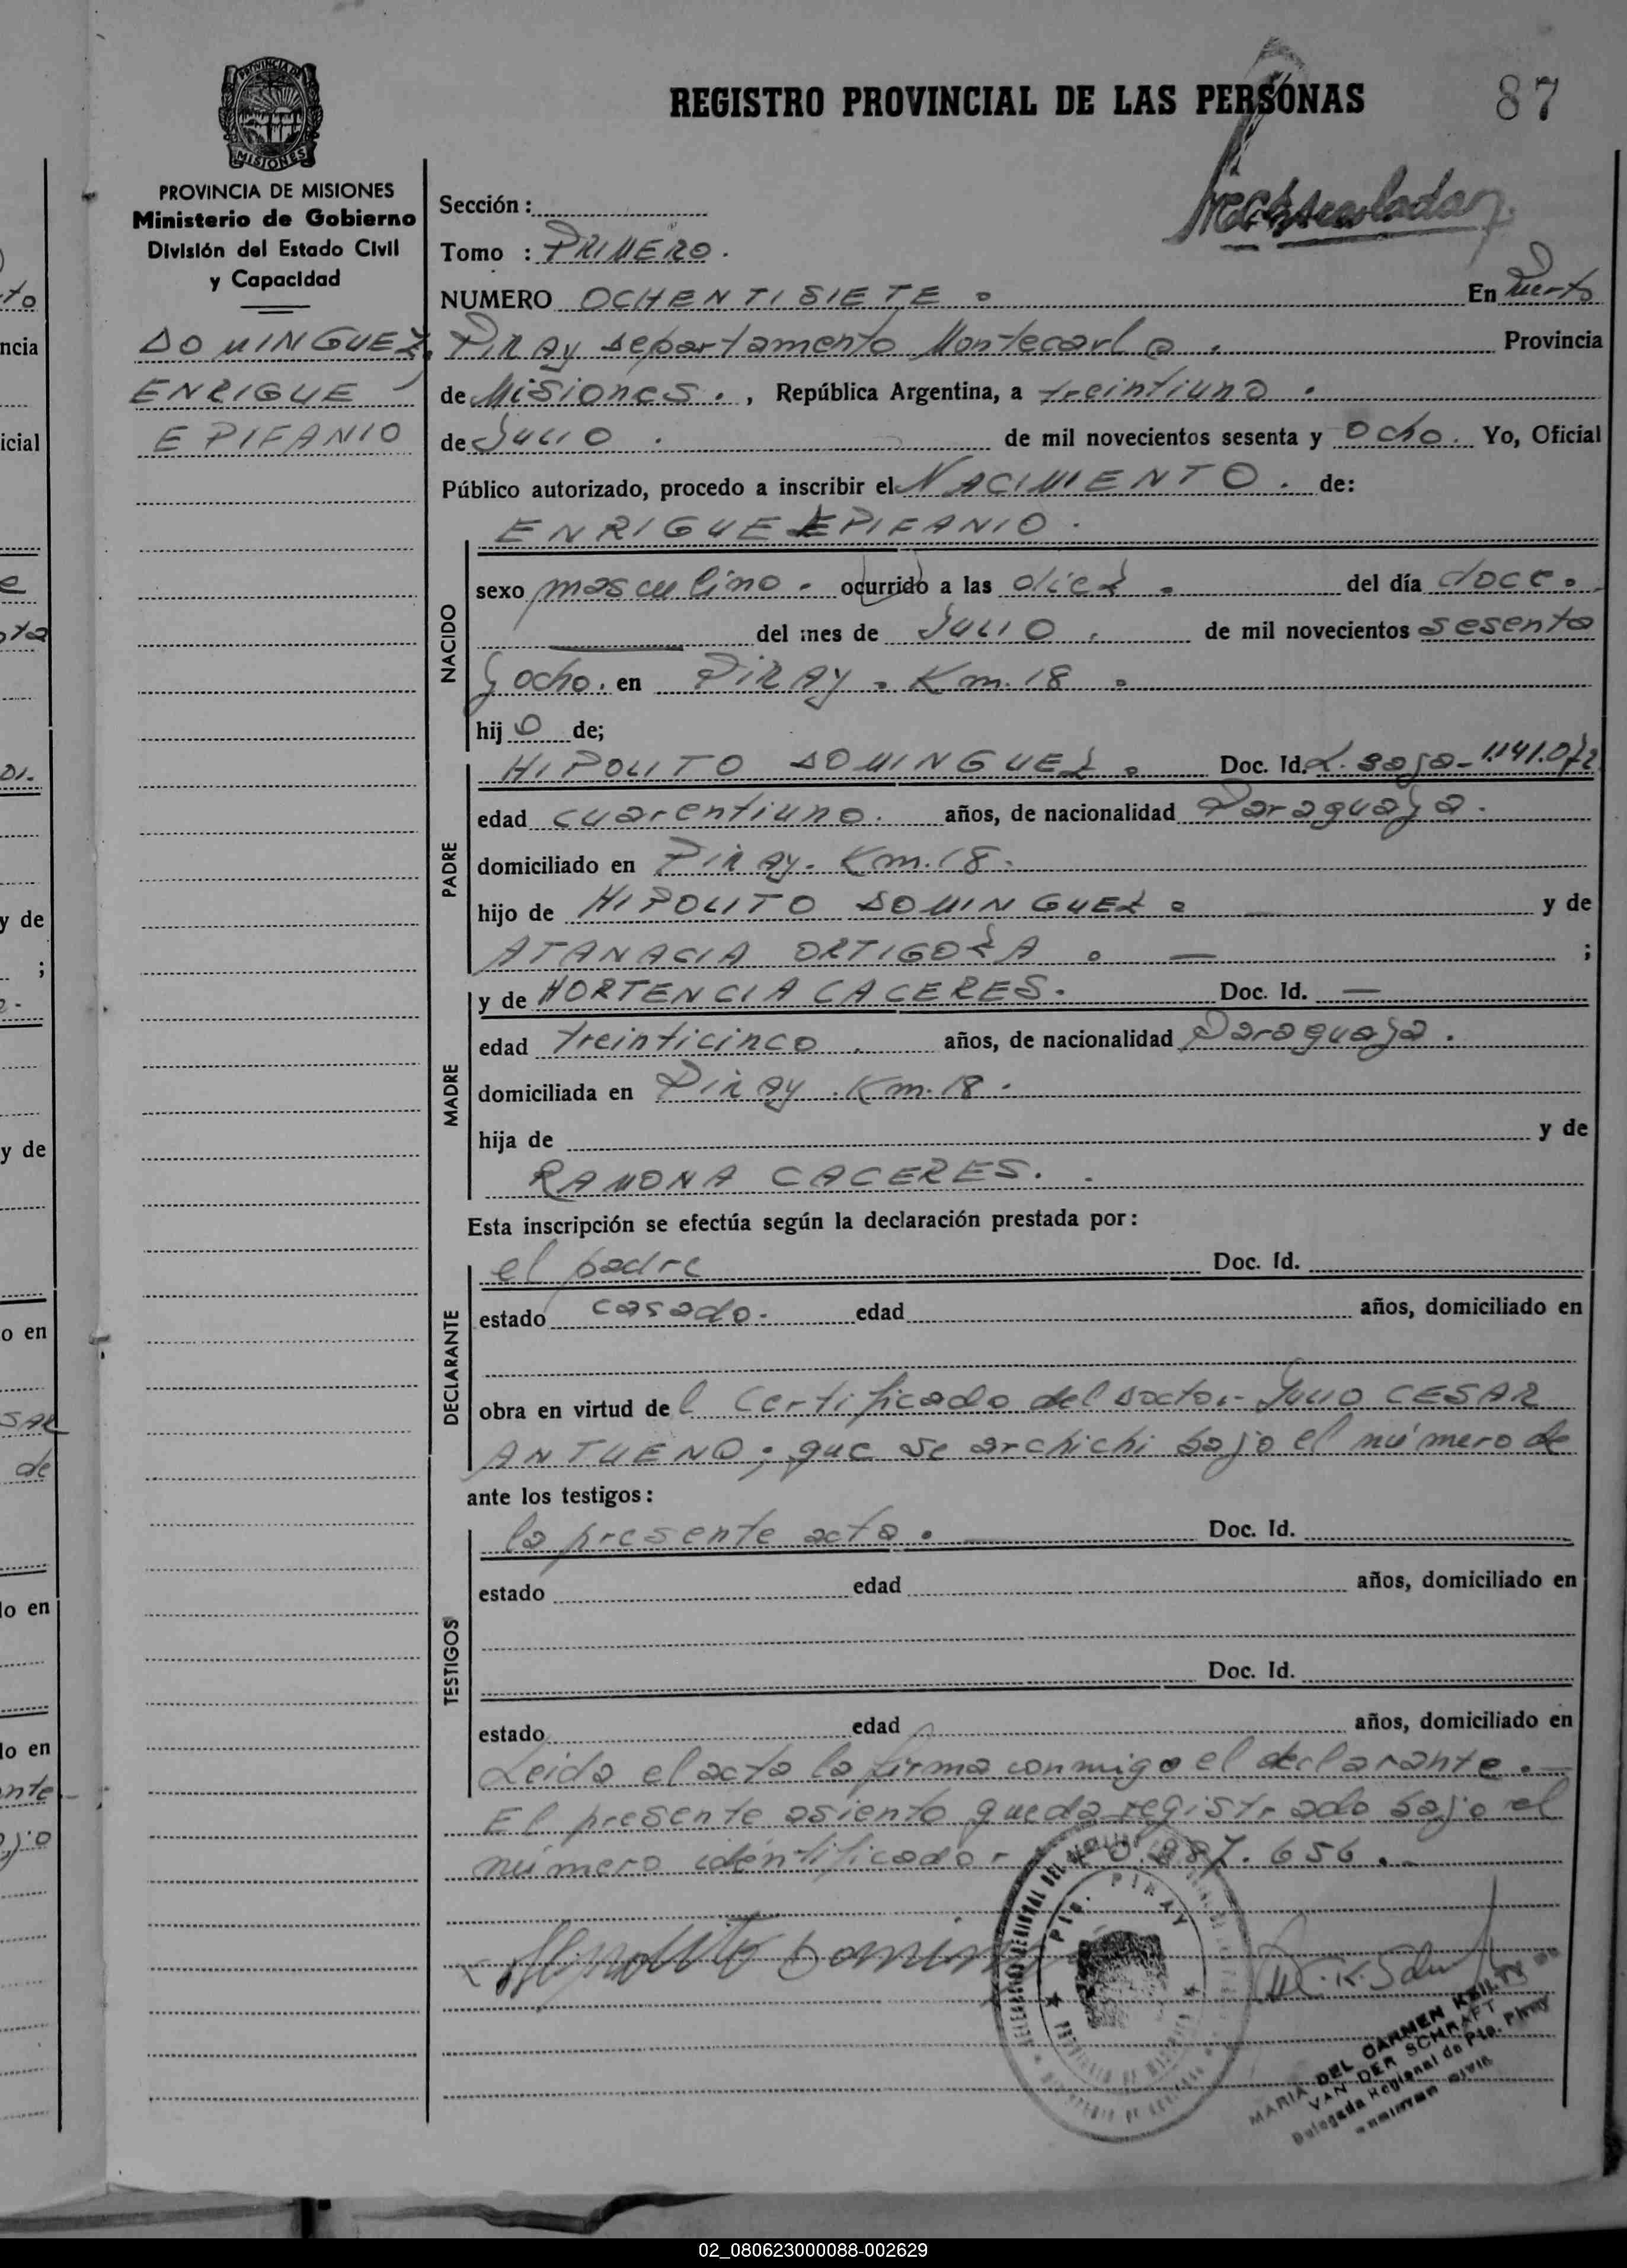 REGISTRO PROVINCIAL DE LAS PERSONAS
87
PROVINCIA DE MISIONES
Ministerio de Gobierno
División del Estado Civil
y Capacidad
DOMINGUEZ,
ENRIGUE
EPIFANIO
Sección :
Tomo : PRIMERO.
NUMERO OCHENTISIETE. En Puerto
Piray departamento Montecarlo. Provincia
de Misiones., República Argentina, a treintiuno.
de Julio. de mil novecientos sesenta y ocho. Yo, Oficial
Público autorizado, procedo a inscribir el NACIMIENTO. de:
ENRIGUE EPIFANIO.
NACIDO
sexo masculino. ocurrido a las diez. del día doce.
del mes de Julio. de mil novecientos sesenta
y ocho. en Piray. Km. 18.
hijo de;
PADRE
HIPOLITO DOMINGUEZ. Doc. Id. 1.141.072
edad cuarentiuno. años, de nacionalidad Paraguaya.
domiciliado en Piray. Km. 18.
hijo de HIPOLITO DOMINGUEZ. — y de
ATANACIA ORTIGOZA. — ;
MADRE
y de HORTENCIA CACERES. Doc. Id. —
edad treinticinco. años, de nacionalidad Paraguaya.
domiciliada en Piray. Km. 18.
hija de y de
RAMONA CACERES.
Esta inscripción se efectúa según la declaración prestada por:
DECLARANTE
el padre Doc. Id.
estado casado. edad años, domiciliado en
obra en virtud del certificado del doctor JULIO CESAR
ANTUENO; que se archichi bajo el número de
ante los testigos:
TESTIGOS
la presente acta. Doc. Id.
estado edad años, domiciliado en
Doc. Id.
estado edad años, domiciliado en
Leida el acta la firma conmigo el declarante.—
El presente asiento queda registrado bajo el
número identificador 887.656.
Hipolito Domin
PTO. PIRAY
MARIA DEL CARMEN KEILTY DE
VAN DER SCHRAFT
Delegada Regional de Pto. Piray
02_080623000088-002629